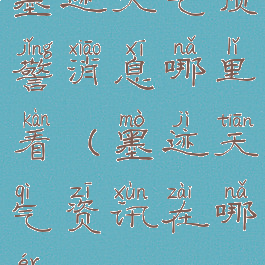 墨迹天气预
jǐng xiāo xī nǎ lǐ
警消息哪里
kàn mò jì tiān
看（墨迹天
qì zī xùn zài nǎ
气资讯在哪
ér